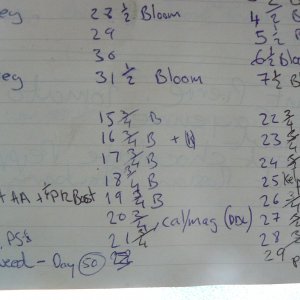 ey 28 ½ Bloom 4 ½
29 5 ½
30 6 ½ Blo
ey 31 ½ Bloom 7 ½
15 ¾ B 22 ¾
16 ¾ B + N 23
17 ¾ B 24
18 ¾ B 25 Kelp
+ AA + ¼ PK Boost 19 ¾ B 26 ¾
20 ¾ Cal/mag (DDL) 27 ¾
, PS8 21 ¾ 28
weed - Day 50 29